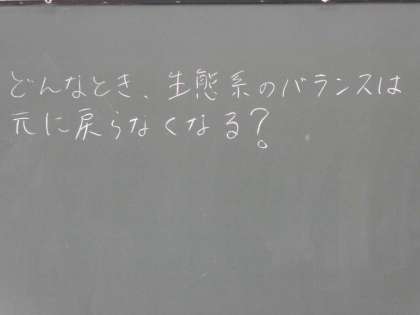 どんなとき、生態系のバランスは
元に戻らなくなる?